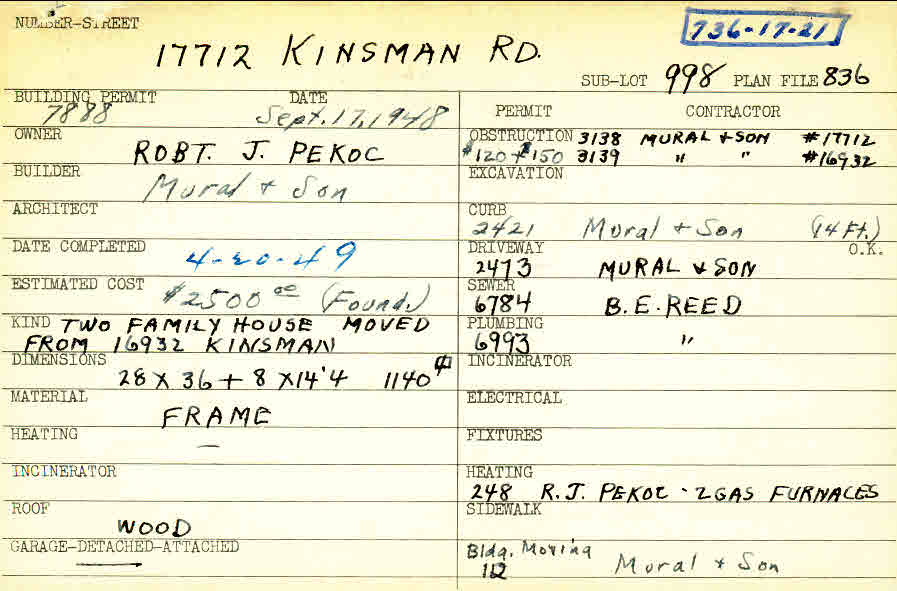 NUMBER-STREET
736-17-21
17712 KINSMAN RD.
SUB-LOT 998 PLAN FILE 836
BUILDING PERMIT DATE
7888 Sept. 17, 1948
OWNER
ROBT. J. PEKOC
BUILDER
Mural + Son
ARCHITECT
DATE COMPLETED
4-20-49
ESTIMATED COST
$2500 00 (Found.)
KIND TWO FAMILY HOUSE MOVED
FROM 16932 KINSMAN
DIMENSIONS
28 X 36 + 8 X 14'4 1140
MATERIAL
FRAME
HEATING
—
INCINERATOR
ROOF
WOOD
GARAGE-DETACHED-ATTACHED
PERMIT CONTRACTOR
OBSTRUCTION 3138 MURAL + SON #17712
$120 + $150 3139 " " #16932
EXCAVATION
CURB
2421 Mural + Son (14 Ft.)
DRIVEWAY O.K.
2473 MURAL + SON
SEWER
6784 B.E. REED
PLUMBING
6993 "
INCINERATOR
ELECTRICAL
FIXTURES
HEATING
248 R.J. PEKOC - 2 GAS FURNACES
SIDEWALK
Bldg. Moving
112 Mural + Son